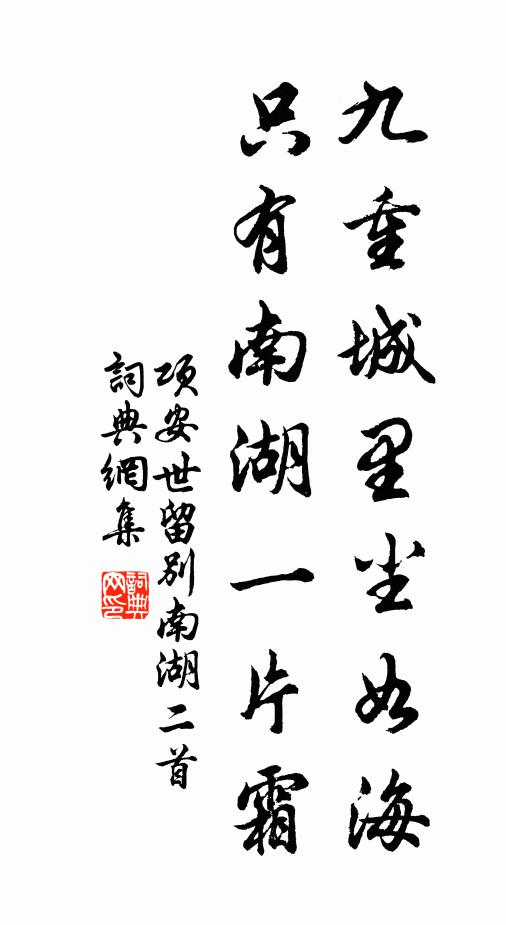 九重城里尘如海
只有南湖一片霜
项安世留别南湖二首
詞典網集
詞典網印